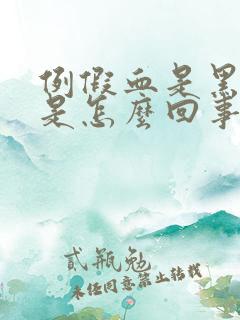 例假血是黑
是怎麼回事
貳瓶勉
未经同意禁止转载